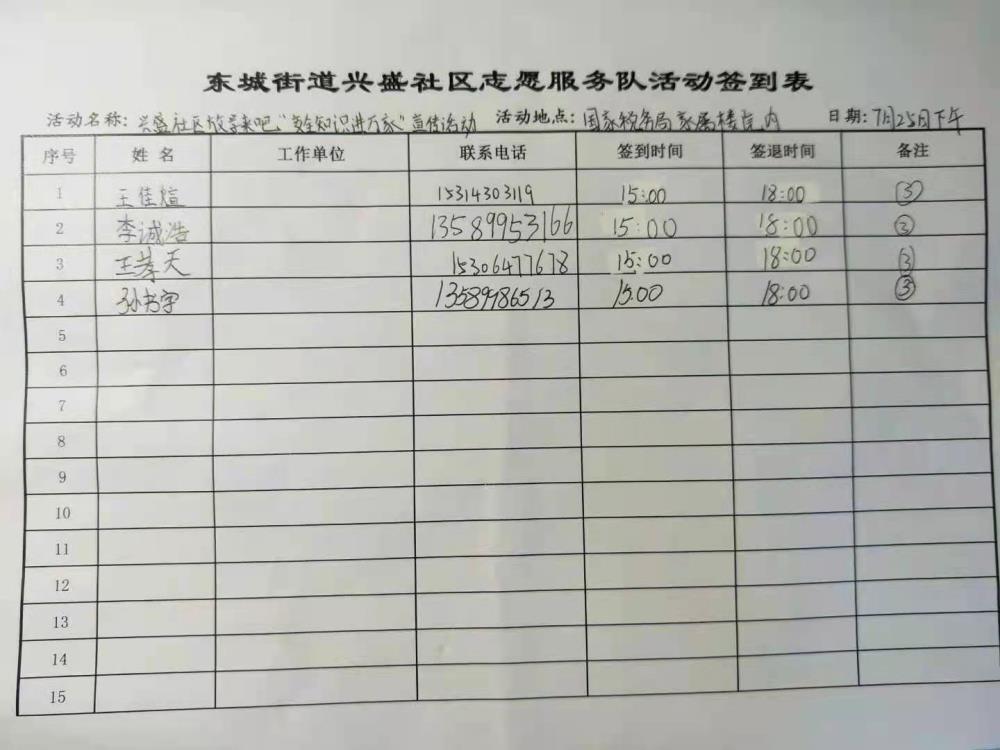 东城街道兴盛社区志愿服务队活动签到表
活动名称：兴盛社区放学来吧“安全知识进万家”宣传活动 活动地点：国家税务局家属楼院内 日期：7月25日下午
序号 姓名 工作单位 联系电话 签到时间 签退时间 备注
1 王佳煊 15314303119 15:00 18:00 ③
2 李诚浩 13589953166 15:00 18:00 ③
3 王 天 15306477678 15:00 18:00 ③
4 孙书宇 13589986513 15:00 18:00 ③
5
6
7
8
9
10
11
12
13
14
15